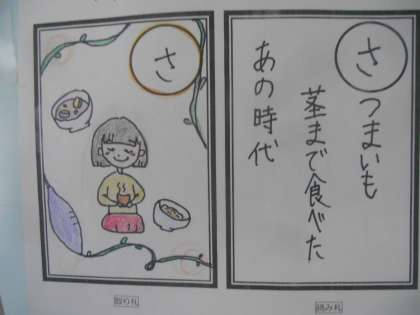 さ
取り札
さつまいも
茎まで食べた
あの時代
読み札